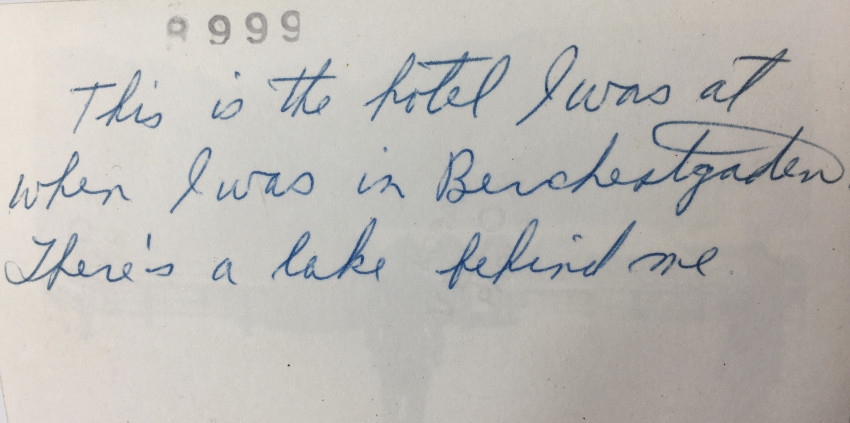 8999
This is the hotel I was at
when I was in Berchestgaden.
There's a lake behind me.